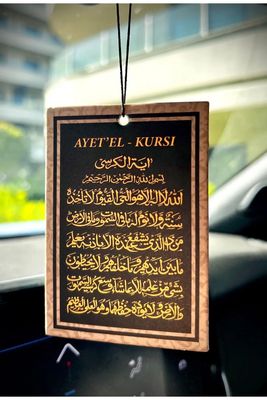 AYET'EL - KURSI
اية الكرسي
بسم الله الرحمن الرحيم
الله لا اله الا هو الحي القيوم لا تأخذه
سنة ولا نوم له ما في السموات وما في الارض
من ذا الذي يشفع عنده الا باذنه يعلم
ما بين ايديهم وما خلفهم ولا يحيطون
بشيء من علمه الا بما شاء وسع كرسيه السموات
والارض ولا يؤده حفظهما وهو العلي العظيم